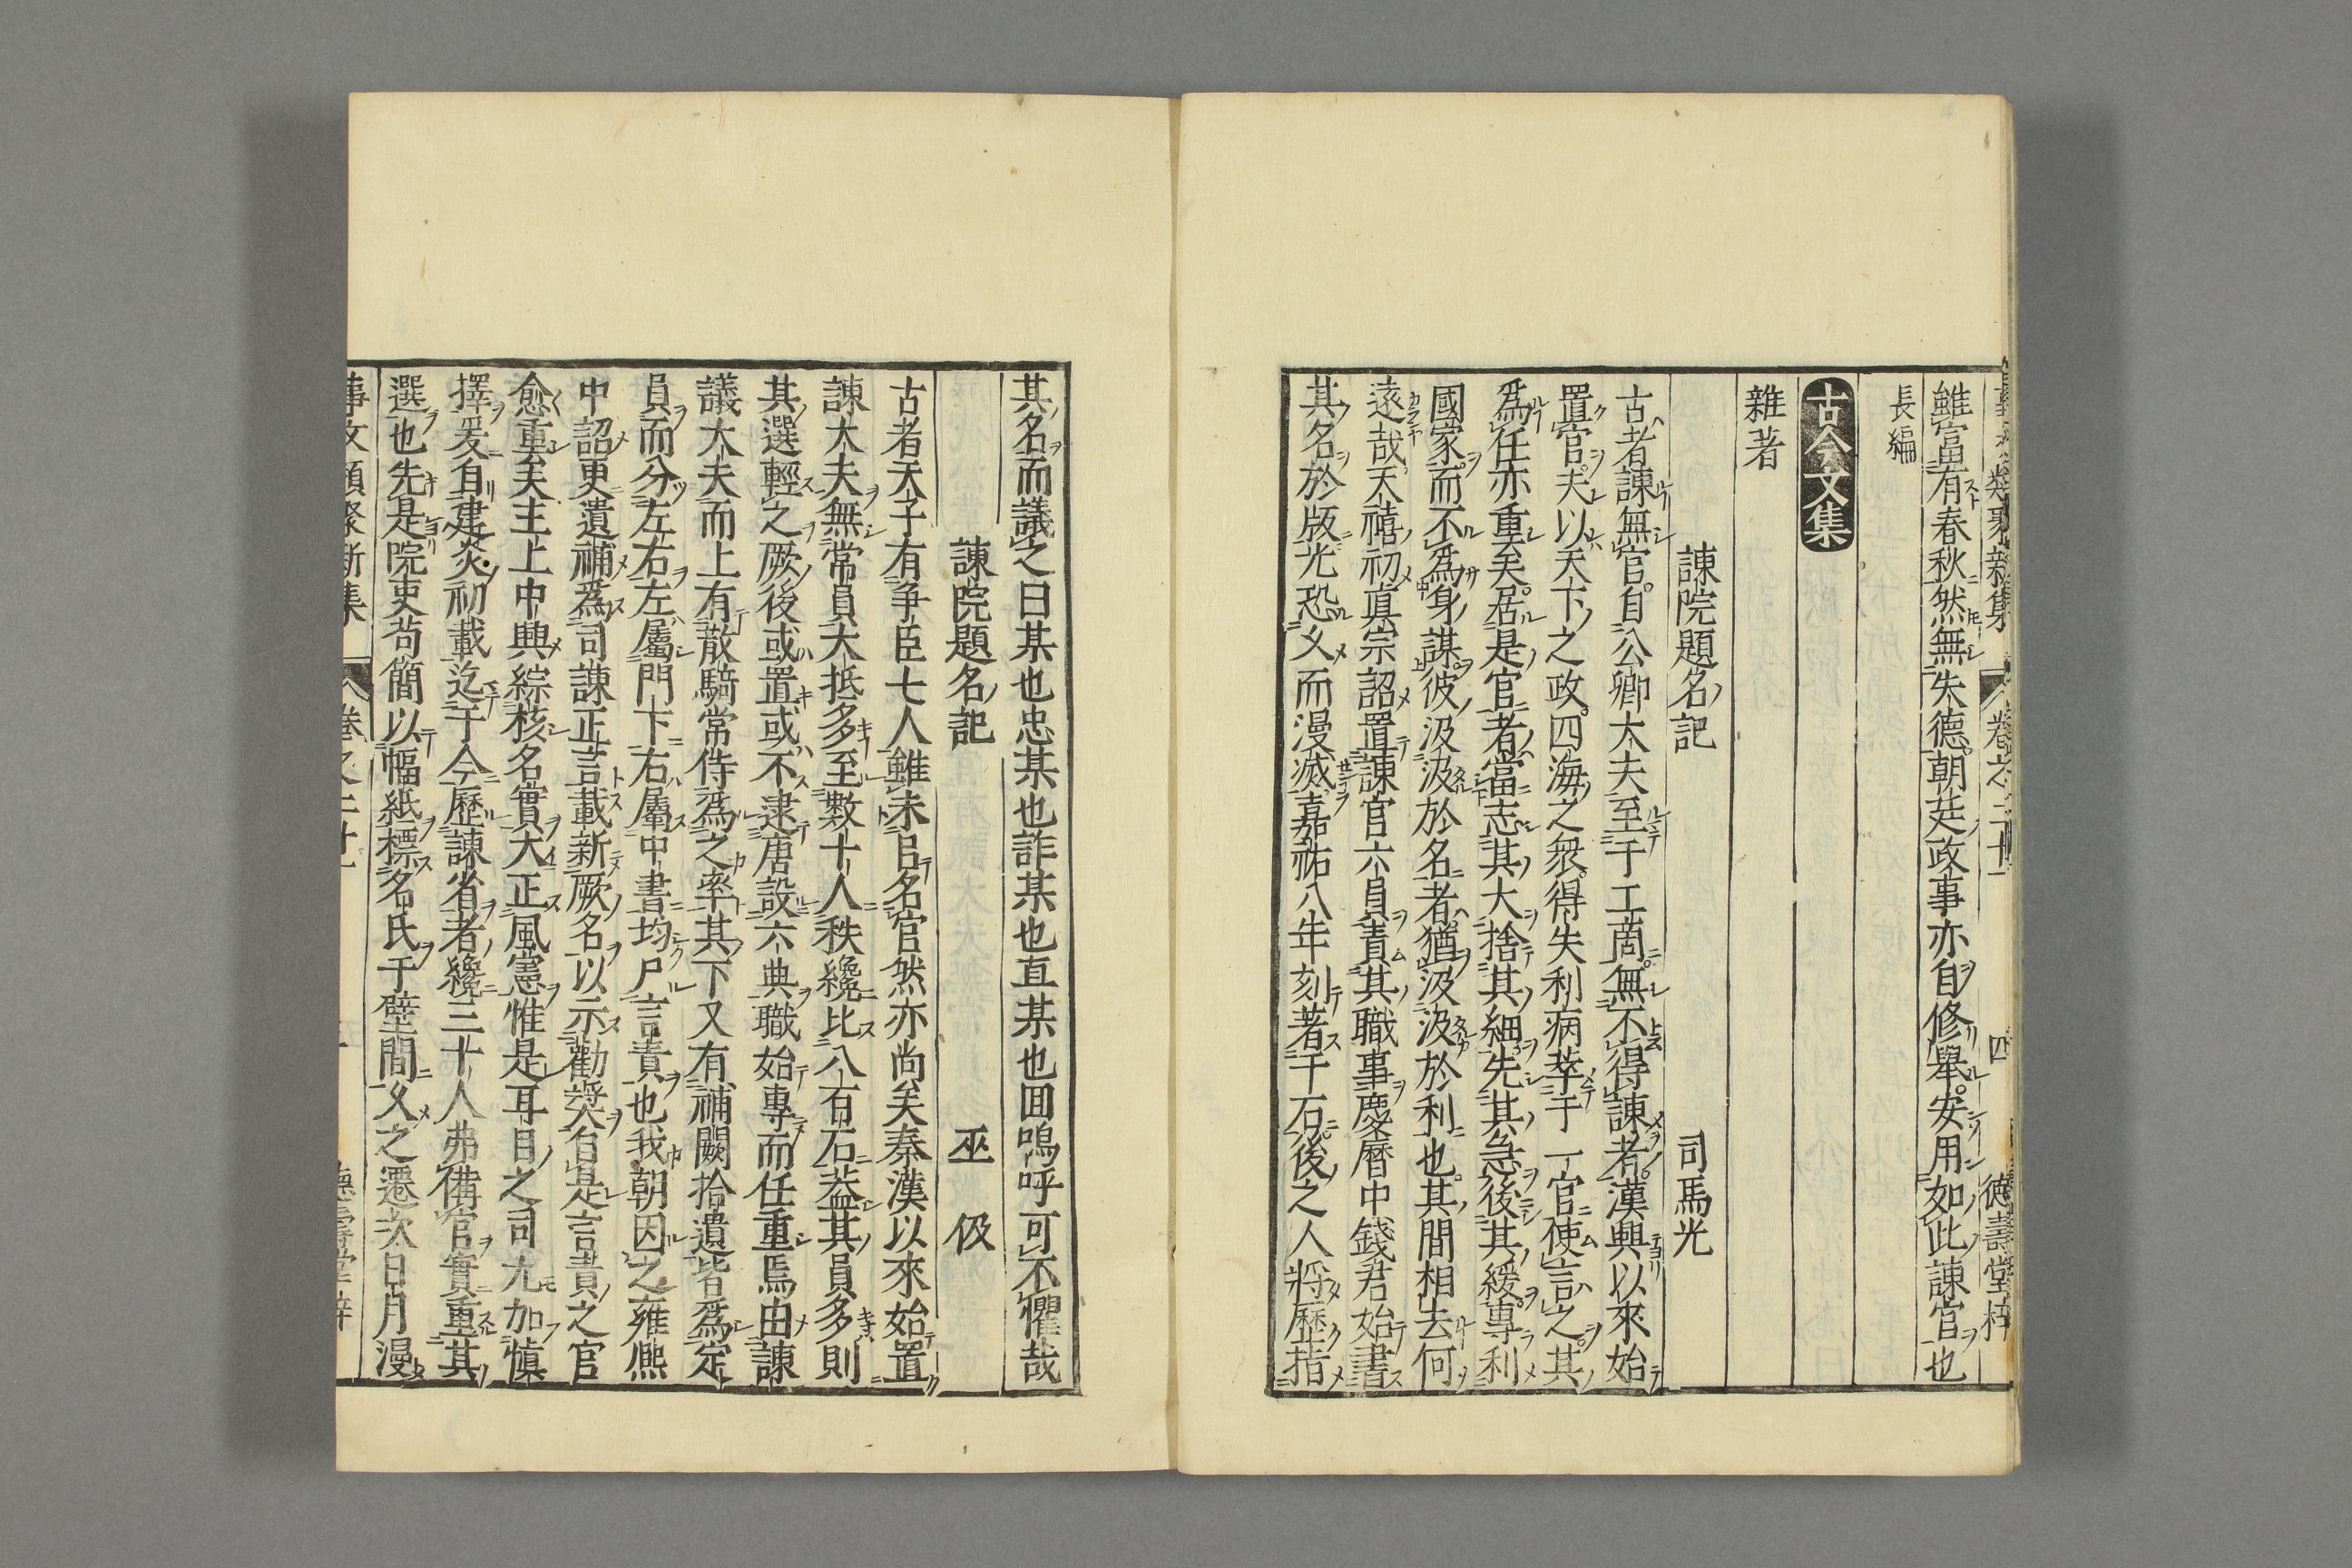 類聚新集 卷之二十一 四 德壽堂梓
雖富有春秋然無失德朝廷政事亦自修舉安用如此諫官也
長編
古今文集
雜著
諫院題名記 司馬光
古者諫無官自公卿大夫至于工商無不得諫者漢興以來始
置官夫以天下之政四海之衆得失利病萃于一官使言之其
爲任亦重矣居是官者當志其大捨其細先其急後其緩專利
國家而不爲身謀彼汲汲於名者猶汲汲於利也其間相去何
遠哉天禧初眞宗詔置諫官六員責其職事慶曆中錢君始書
其名於版光恐乆而漫滅嘉祐八年刻著于石後之人將歷指
其名而議之曰某也忠某也詐某也直某也囬嗚呼可不懼哉
諫院題名記 巫伋
古者天子有爭臣七人雖未㠯名官然亦尚矣秦漢以來始置
諫大夫無常員大抵多至數十人秩纔比八百石葢其員多則
其選輕之厥後或置或不逮唐設六典職始專而任重焉由諫
議大夫而上有散騎常侍爲之率其下又有補闕拾遺皆爲定
員而分左右左屬門下右屬中書均尸言責也我朝因之雍熈
中詔更遺補爲司諫正言載新厥名以示勸奬自是言責之官
愈重矣主上中興綜核名實大正風憲惟是耳目之司尤加愼
擇爰自建炎初載迄于今歷諫省者纔三十人弗備官實重其
選也先是院吏苟簡以幅紙標名氏于壁間乆之遷次日月漫
事文類聚新集 卷之二十一 德壽堂梓